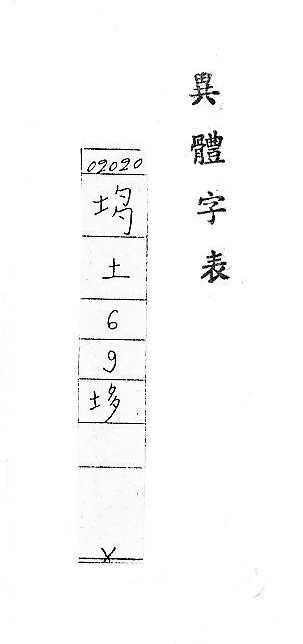 異體字表
09020
土
6
9
垑
X